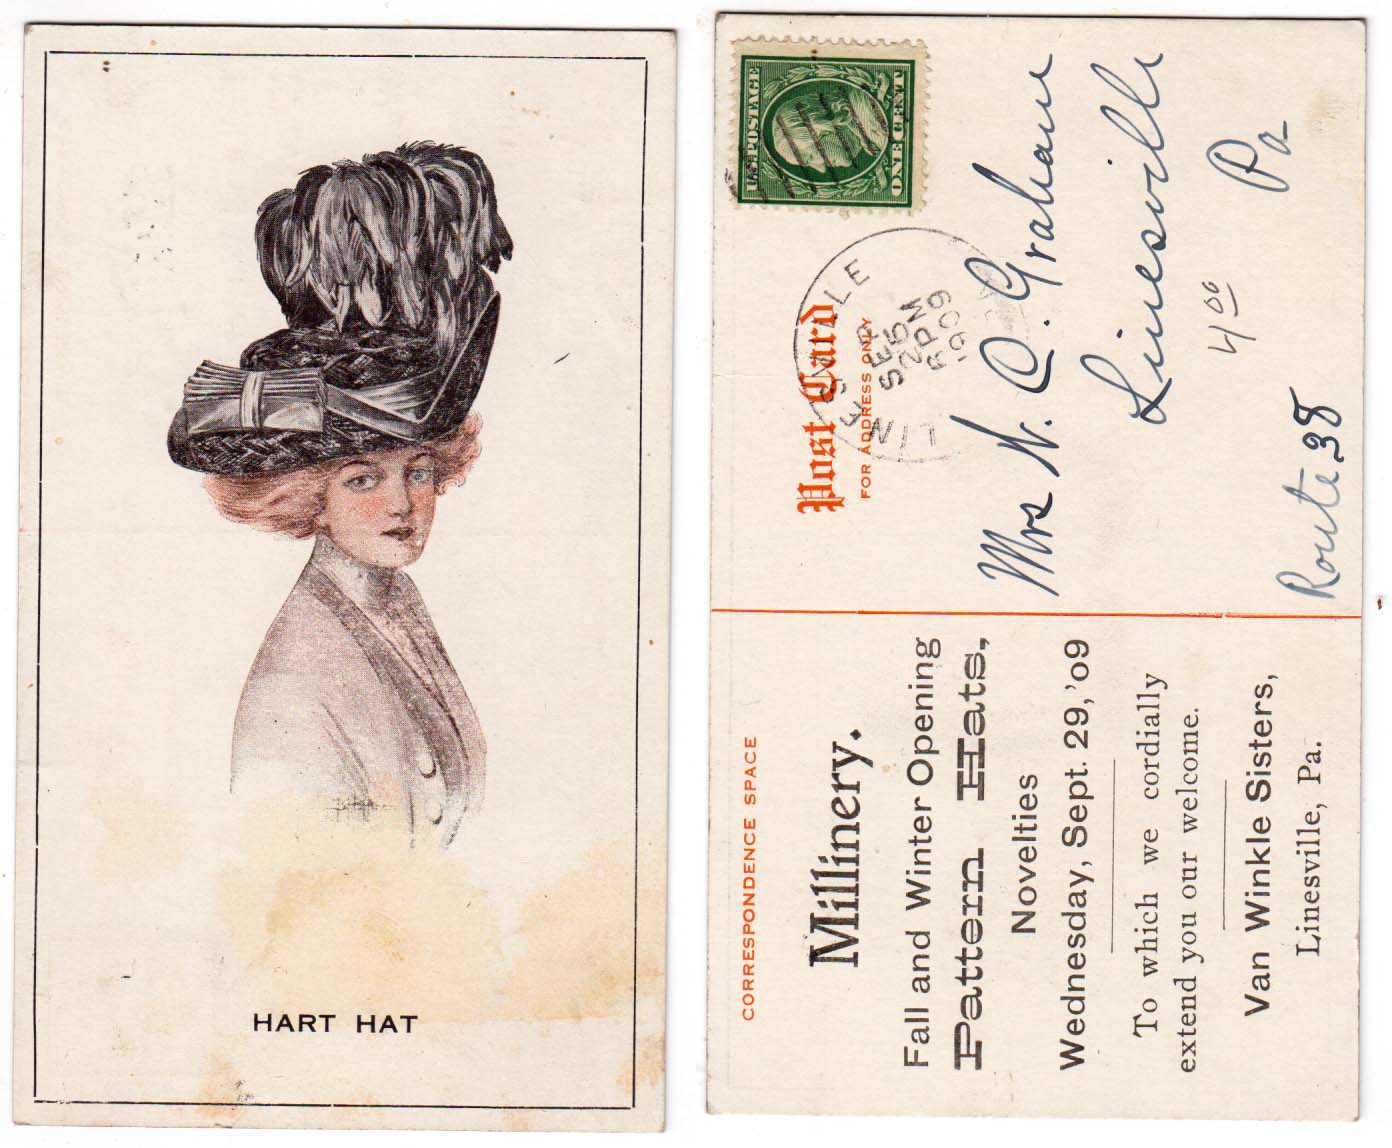 HART HAT
CORRESPONDENCE SPACE
Millinery.
Fall and Winter Opening
Pattern Hats,
Novelties
Wednesday, Sept. 29,'09
To which we cordially
extend you our welcome.
Van Winkle Sisters,
Linesville, Pa.
Post Card
FOR ADDRESS ONLY
U.S. POSTAGE
ONE CENT
LINESVILLE
SEP
25
2 PM
1909
Mrs N. C. Graham
Linesville
Pa
4 00
Route 38